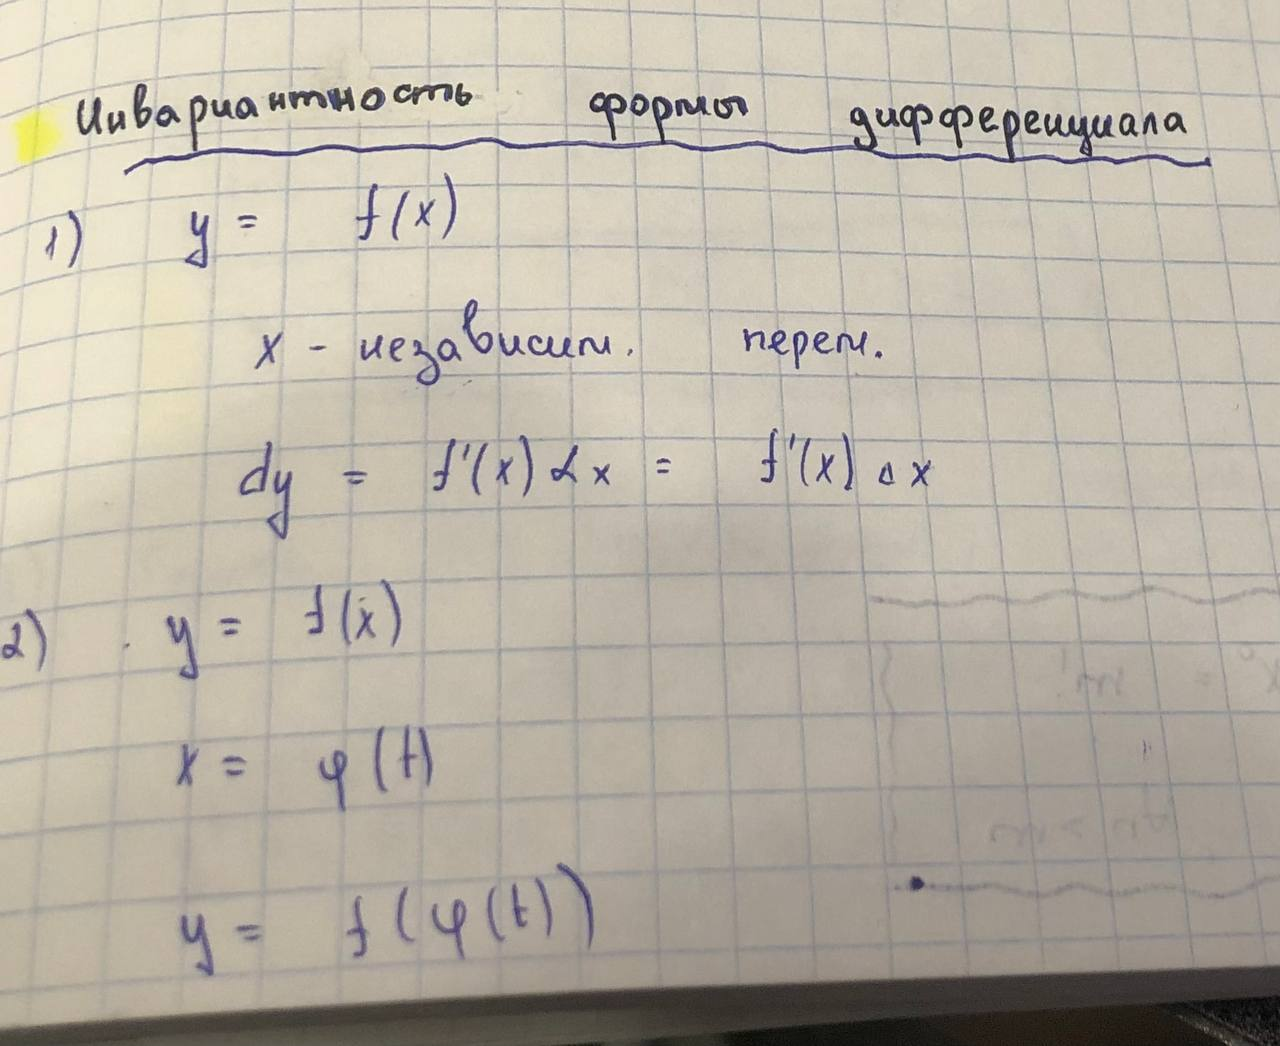 Инвариантность формы дифференциала
1) y = f(x)
x - независим. перем.
dy = f'(x) dx = f'(x) Δx
2) y = f(x)
x = φ(t)
y = f(φ(t))